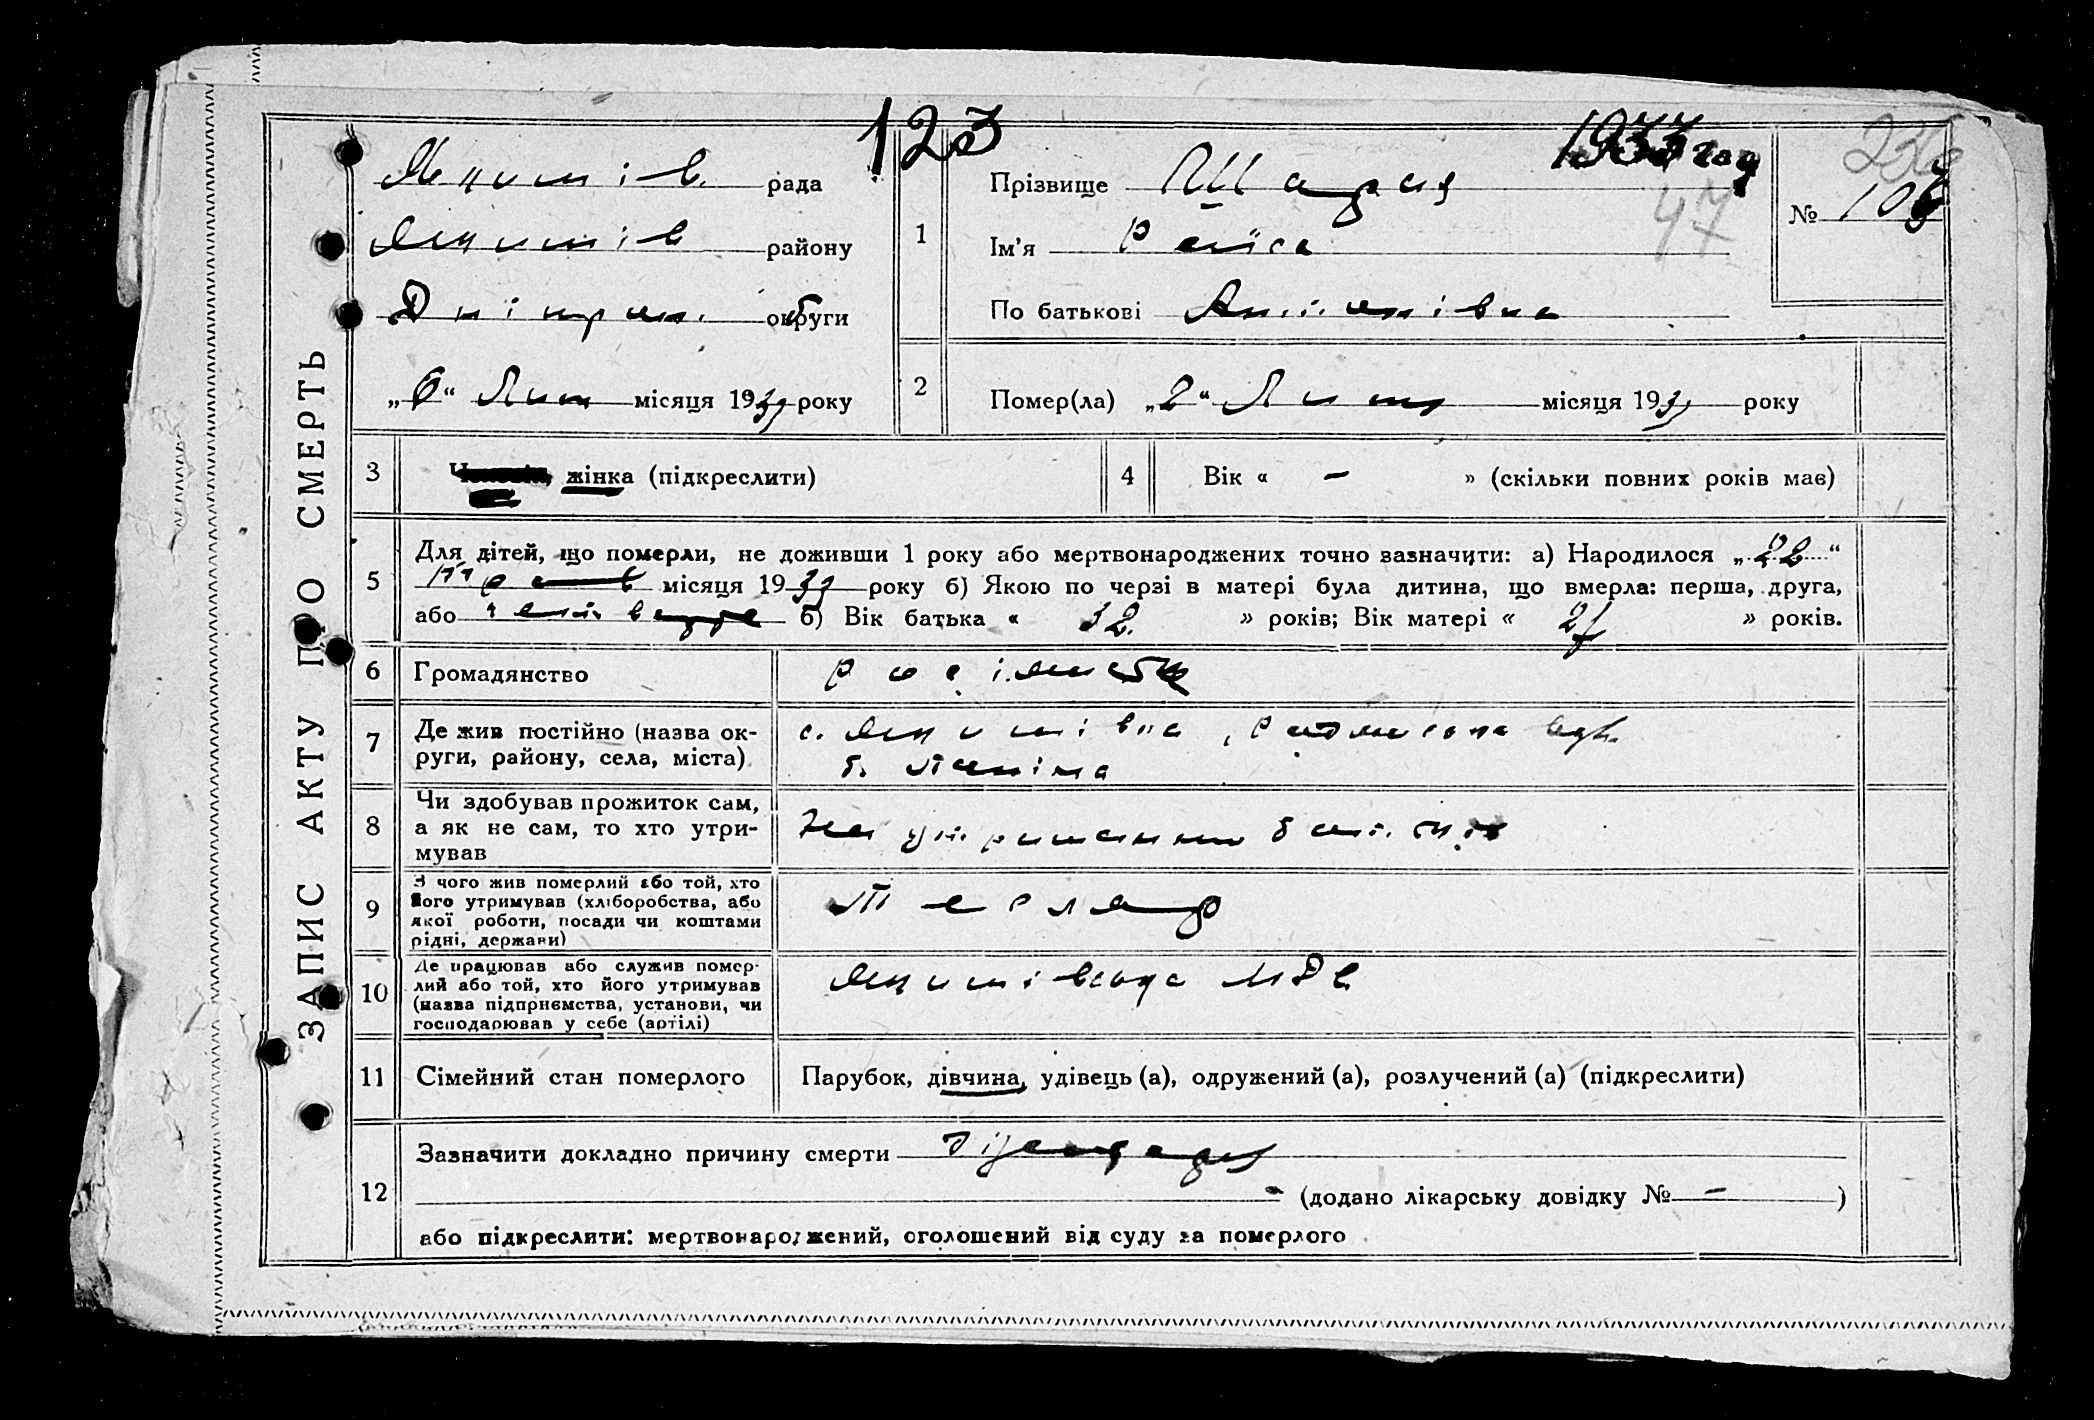 123
1933 год
236
47
рада
району
Дніпроп. округи
„6“ Лип місяця 1933 року
1
Прізвище
Ім’я Раїса
По батькові
№ 10
2
Помер(ла) „2“ Липня місяця 1933 року
ЗАПИС АКТУ ПРО СМЕРТЬ
3
Чоловік, жінка (підкреслити)
4
Вік « – » (скільки повних років має)
5
Для дітей, що померли, не доживши 1 року або мертвонароджених точно зазначити: а) Народилося „22“
Трав місяця 1933 року б) Якою по черзі в матері була дитина, що вмерла: перша, друга,
або четверта б) Вік батька « 32 » років; Вік матері « 27 » років.
6
Громадянство
7
Де жив постійно (назва ок-
руги, району, села, міста)
с.
8
Чи здобував прожиток сам,
а як не сам, то хто утри-
мував
На утриманні батьків
9
З чого жив померлий або той, хто
його утримував (хліборобства, або
якої роботи, посади чи коштами
рідні, держави)
Тесляр
10
Де працював або служив помер-
лий або той, хто його утримував
(назва підприємства, установи, чи
господарював у себе (артілі)
11
Сімейний стан померлого
Парубок, дівчина, удівець (а), одружений (а), розлучений (а) (підкреслити)
12
Зазначити докладно причину смерти
(додано лікарську довідку № – )
або підкреслити: мертвонароджений, оголошений від суду за померлого